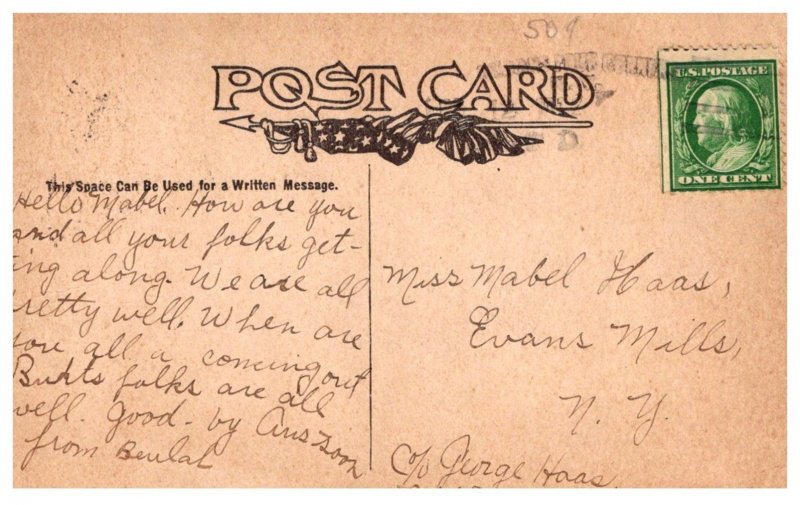 509
POST CARD
U.S. POSTAGE
ONE CENT
This Space Can Be Used for a Written Message.
Hello Mabel. How are you
and all your folks get-
ing along. We are all
retty well. When are
you all a coming out
Burts folks are all
well. Good-by Ans soon
from Beulah
Miss Mabel Haas,
Evans Mills,
N. Y.
c/o George Haas